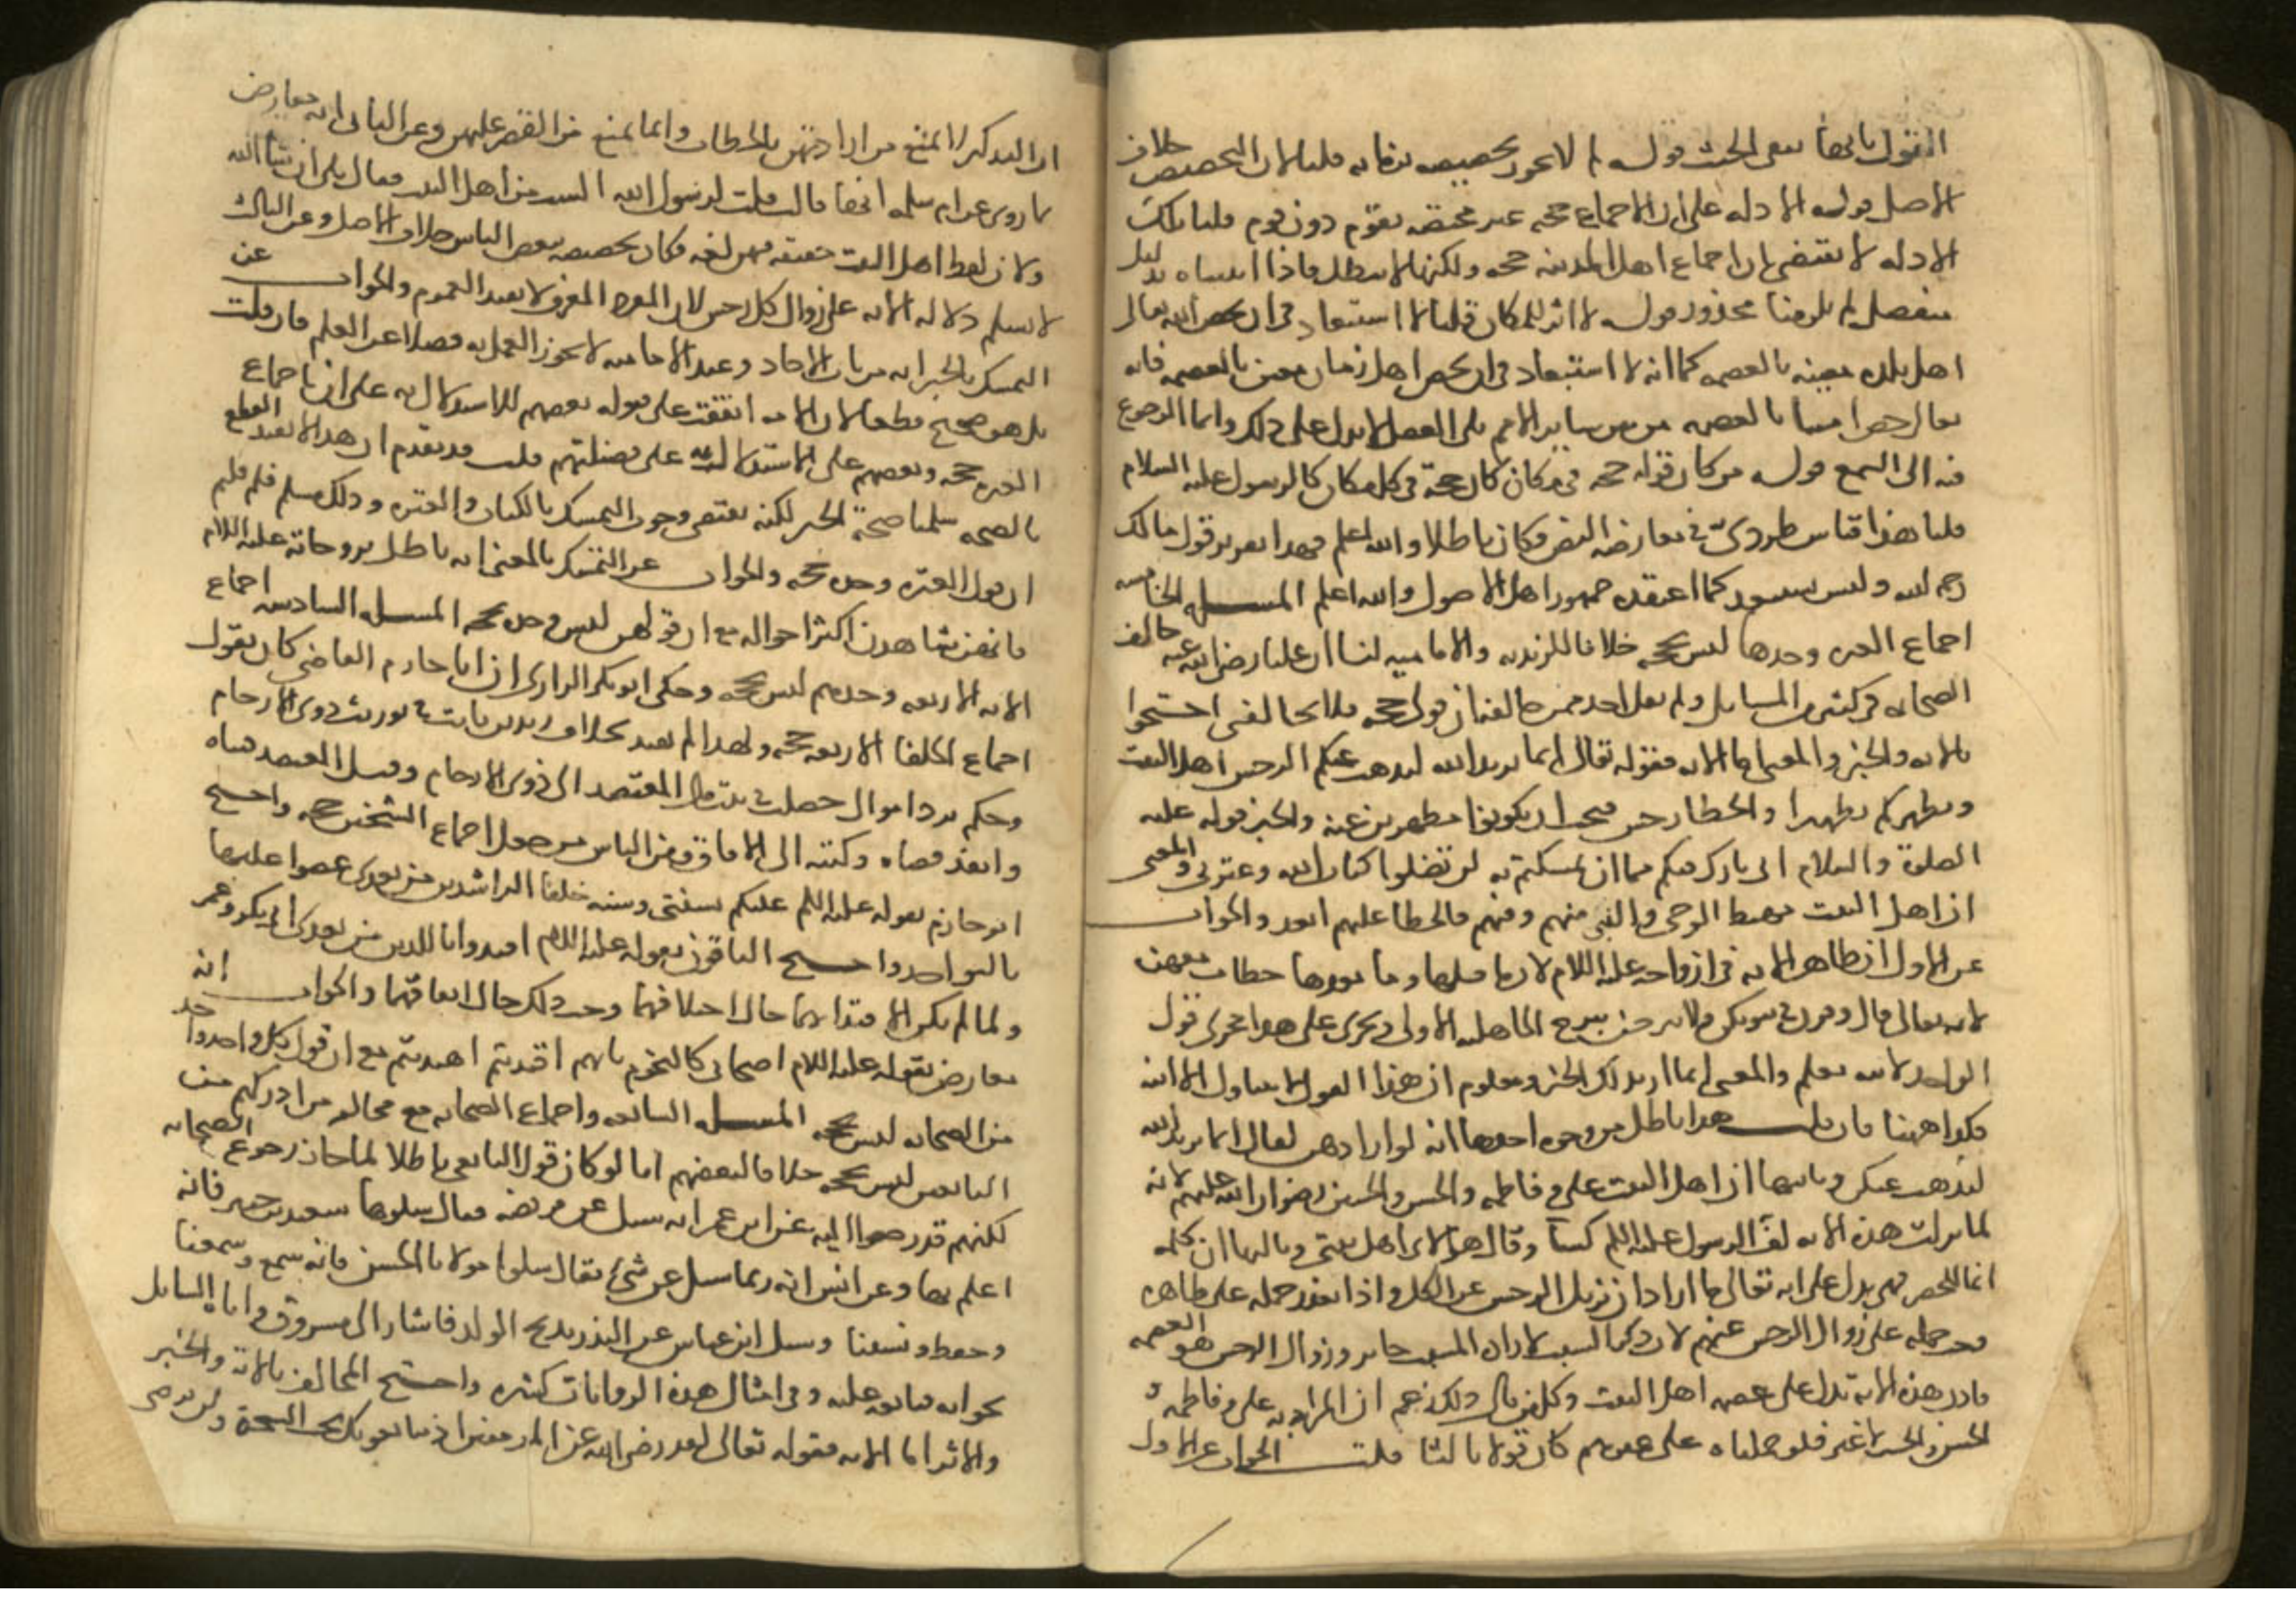 القول بانها تنفي الخبث قوله لم لا يجوز تخصيصه بزمانه قلنا لان التخصيص خلاف
الاصل قوله الادله على ان الاجماع حجه غير مختصه بقوم دون قوم قلنا تلك
الادله لا تقتضي ان اجماع اهل المدينه حجه ولكنها لا تبطله فاذا اثبتناه بدليل
منفصل لم يلزمنا محذور قوله لا اثر للمكان قلنا لا استبعاد في ان يخص الله تعالى
اهل بلده معينه بالعصمه كما انه لا استبعاد في ان يخص اهل زمان معين بالعصمه فانه
تعالى خص امتنا بالعصمه من بين ساير الامم بلى العقل لا يدل على ذلك وانما الرجوع
فيه الى السمع قوله من كان قوله حجه في مكان كان حجة في كل مكان كالرسول عليه السلام
قلنا هذا قياس طردي في معارضه النص فكان باطلا والله اعلم فهذا تقرير قول مالك
رحمه الله وليس بمستبعد كما اعتقده جمهور اهل الاصول والله اعلم المسله الخامسه
اجماع العتره وحدها ليس بحجه خلافا للزيديه والاماميه لنا ان عليا رضي الله عنه خالفه
الصحابه في كثير من المسايل ولم يقل لاحد ممن خالفه ان قولي حجه فلا تخالفني احتجوا
بالايه والخبر والمعنى اما الايه فقوله تعالى انما يريد الله ليذهب عنكم الرجس اهل البيت
ويطهركم تطهيرا والخطا رجس فيجب ان يكونوا مطهرين عنه والخبر قوله عليه
الصلوة والسلام اني تارك فيكم ما ان تمسكتم به لن تضلوا كتاب الله وعترتي والمعنى
ان اهل البيت مهبط الوحي والنبي منهم وفيهم فالخطا عليهم ابعد والجواب
عن الاول ان ظاهر الايه في ازواجه عليه السلام لان ما قبلها وما بعدها خطاب معهن
لانه تعالى قال وقرن في بيوتكن ولا تبرجن تبرج الجاهليه الاولى ويجري على هذا مجرى قول
الواحد لابنه تعلم والمعنى انما اريد لك الخير ومعلوم ان هذا القول لا يتناول الا ابنه
فكذا ههنا فان قلت هذا باطل من وجوه احدها انه لو ارادهن لقال انما يريد الله
ليذهب عنكن وثانيها ان اهل البيت علي وفاطمه والحسن والحسين رضوان الله عليهم لانه
لما نزلت هذه الايه لف الرسول عليه السلم كساً وقال هؤلاء اهل بيتي وثالثها ان كلمه
انما للحصر فهي يدل على انه تعالى ما اراد ان يزيل الرجس عن الكل واذا تعذر حمله على ظاهره
وجب حمله على زوال الرجس عنهم لان ذكر السبب لاراده المسبب جايز وزوال الرجس هو العصمه
فاذن هذه الايه تدل على عصمه اهل البيت وكل من قال ذلك زعم ان المراد به علي وفاطمه و
الحسن والحسين لا غير فلو حملناه على غيرهم كان قولا ثالثا قلت الجواب عن الاول
ان التذكير لا يمنع من ارادتهن بالخطاب وانما يمنع من القصر عليهن وعن الثاني انه معارض
بما روي عن ام سلمه انها قالت قلت لرسول الله الست من اهل البيت فقال بلى ان شا الله
ولان لفظ اهل البيت حقيقه فيهن لغه فكان تخصيصه ببعض الناس خلاف الاصل وعن الثالث
لا نسلم دلاله الايه على زوال كل رجس لان المفرد المعرف لا يفيد العموم والجواب عن
التمسك بالخبر انه من باب الاحاد وعند الاماميه لا يجوز العمل به فضلا عن العلم فان قلت
بل هو صحيح قطعا لان الامه اتفقت على قبوله بعضهم للاستدلال به على ان اجماع
العتره حجه وبعضهم على الاستدلال به على فضيلتهم قلت قد تقدم ان هذا لا يفيد القطع
بالصحه سلمنا صحة الخبر لكنه يقتضي وجوب التمسك بالكتاب والعتره وذلك مسلم فلم قلتم
ان قول العتره وحده حجه والجواب عن التمسك بالمعنى انه باطل بزوجاته عليه السلام
فانهن شاهدن اكثر احواله مع ان قولهن ليس وحده بحجه المسله السادسه اجماع
الايمه الاربعه وحدهم ليس بحجه وحكى ابو بكر الرازي ان ابا حازم القاضي كان يقول
اجماع الخلفا الاربعه حجه ولهذا لم يعتد بخلاف زيد بن ثابت في توريث ذوي الارحام
وحكم برد اموال حصلت في بيت مال المعتضد الى ذوي الارحام وقبل المعتضد فتياه
وانفذ قضاه وكتبه الى الافاق ومن الناس من جعل اجماع الشيخين حجه واحتج
ابو حازم بقوله عليه السلم عليكم بسنتي وسنه خلفا الراشدين من بعدي عضوا عليها
بالنواجد واحتج الباقون بقوله عليه السلم اقتدوا باللذين من بعدي ابي بكر وعمر
ولما لم يكن الاقتدا بهما حال اختلافهما وجب ذلك حال اتفاقهما والجواب انه
معارض بقوله عليه السلام اصحابي كالنجوم بايهم اقتديتم اهتديتم مع ان قول كل واحد وا حد
من الصحابه ليس بحجه المسله السابعه واجماع الصحابه مع مخالفه من ادركهم من
التابعين ليس بحجه خلافا لبعضهم انا لو كان قول التابعي باطلا لما جاز رجوع الصحابه
لكنهم قد رجعوا اليه عن ابن عمر انه سيل عن فريضه فقال سلوها سعيد بن جبير فانه
اعلم بها وعن انس انه ربما سيل عن شئ فقال سلوا مولانا الحسن فانه سمع وسمعنا
وحفظ ونسينا وسيل ابن عباس عن النذر بذبح الولد فاشار الى مسروق واتاه السايل
بجوابه فتابعه عليه وفي امثال هذه الروايات كثيره واحتج المخالف بالايه والخبر
والاثر اما الايه فقوله تعالى لقد رضي الله عن المومنين اذ يبايعونك تحت الشجرة ولن يرضى